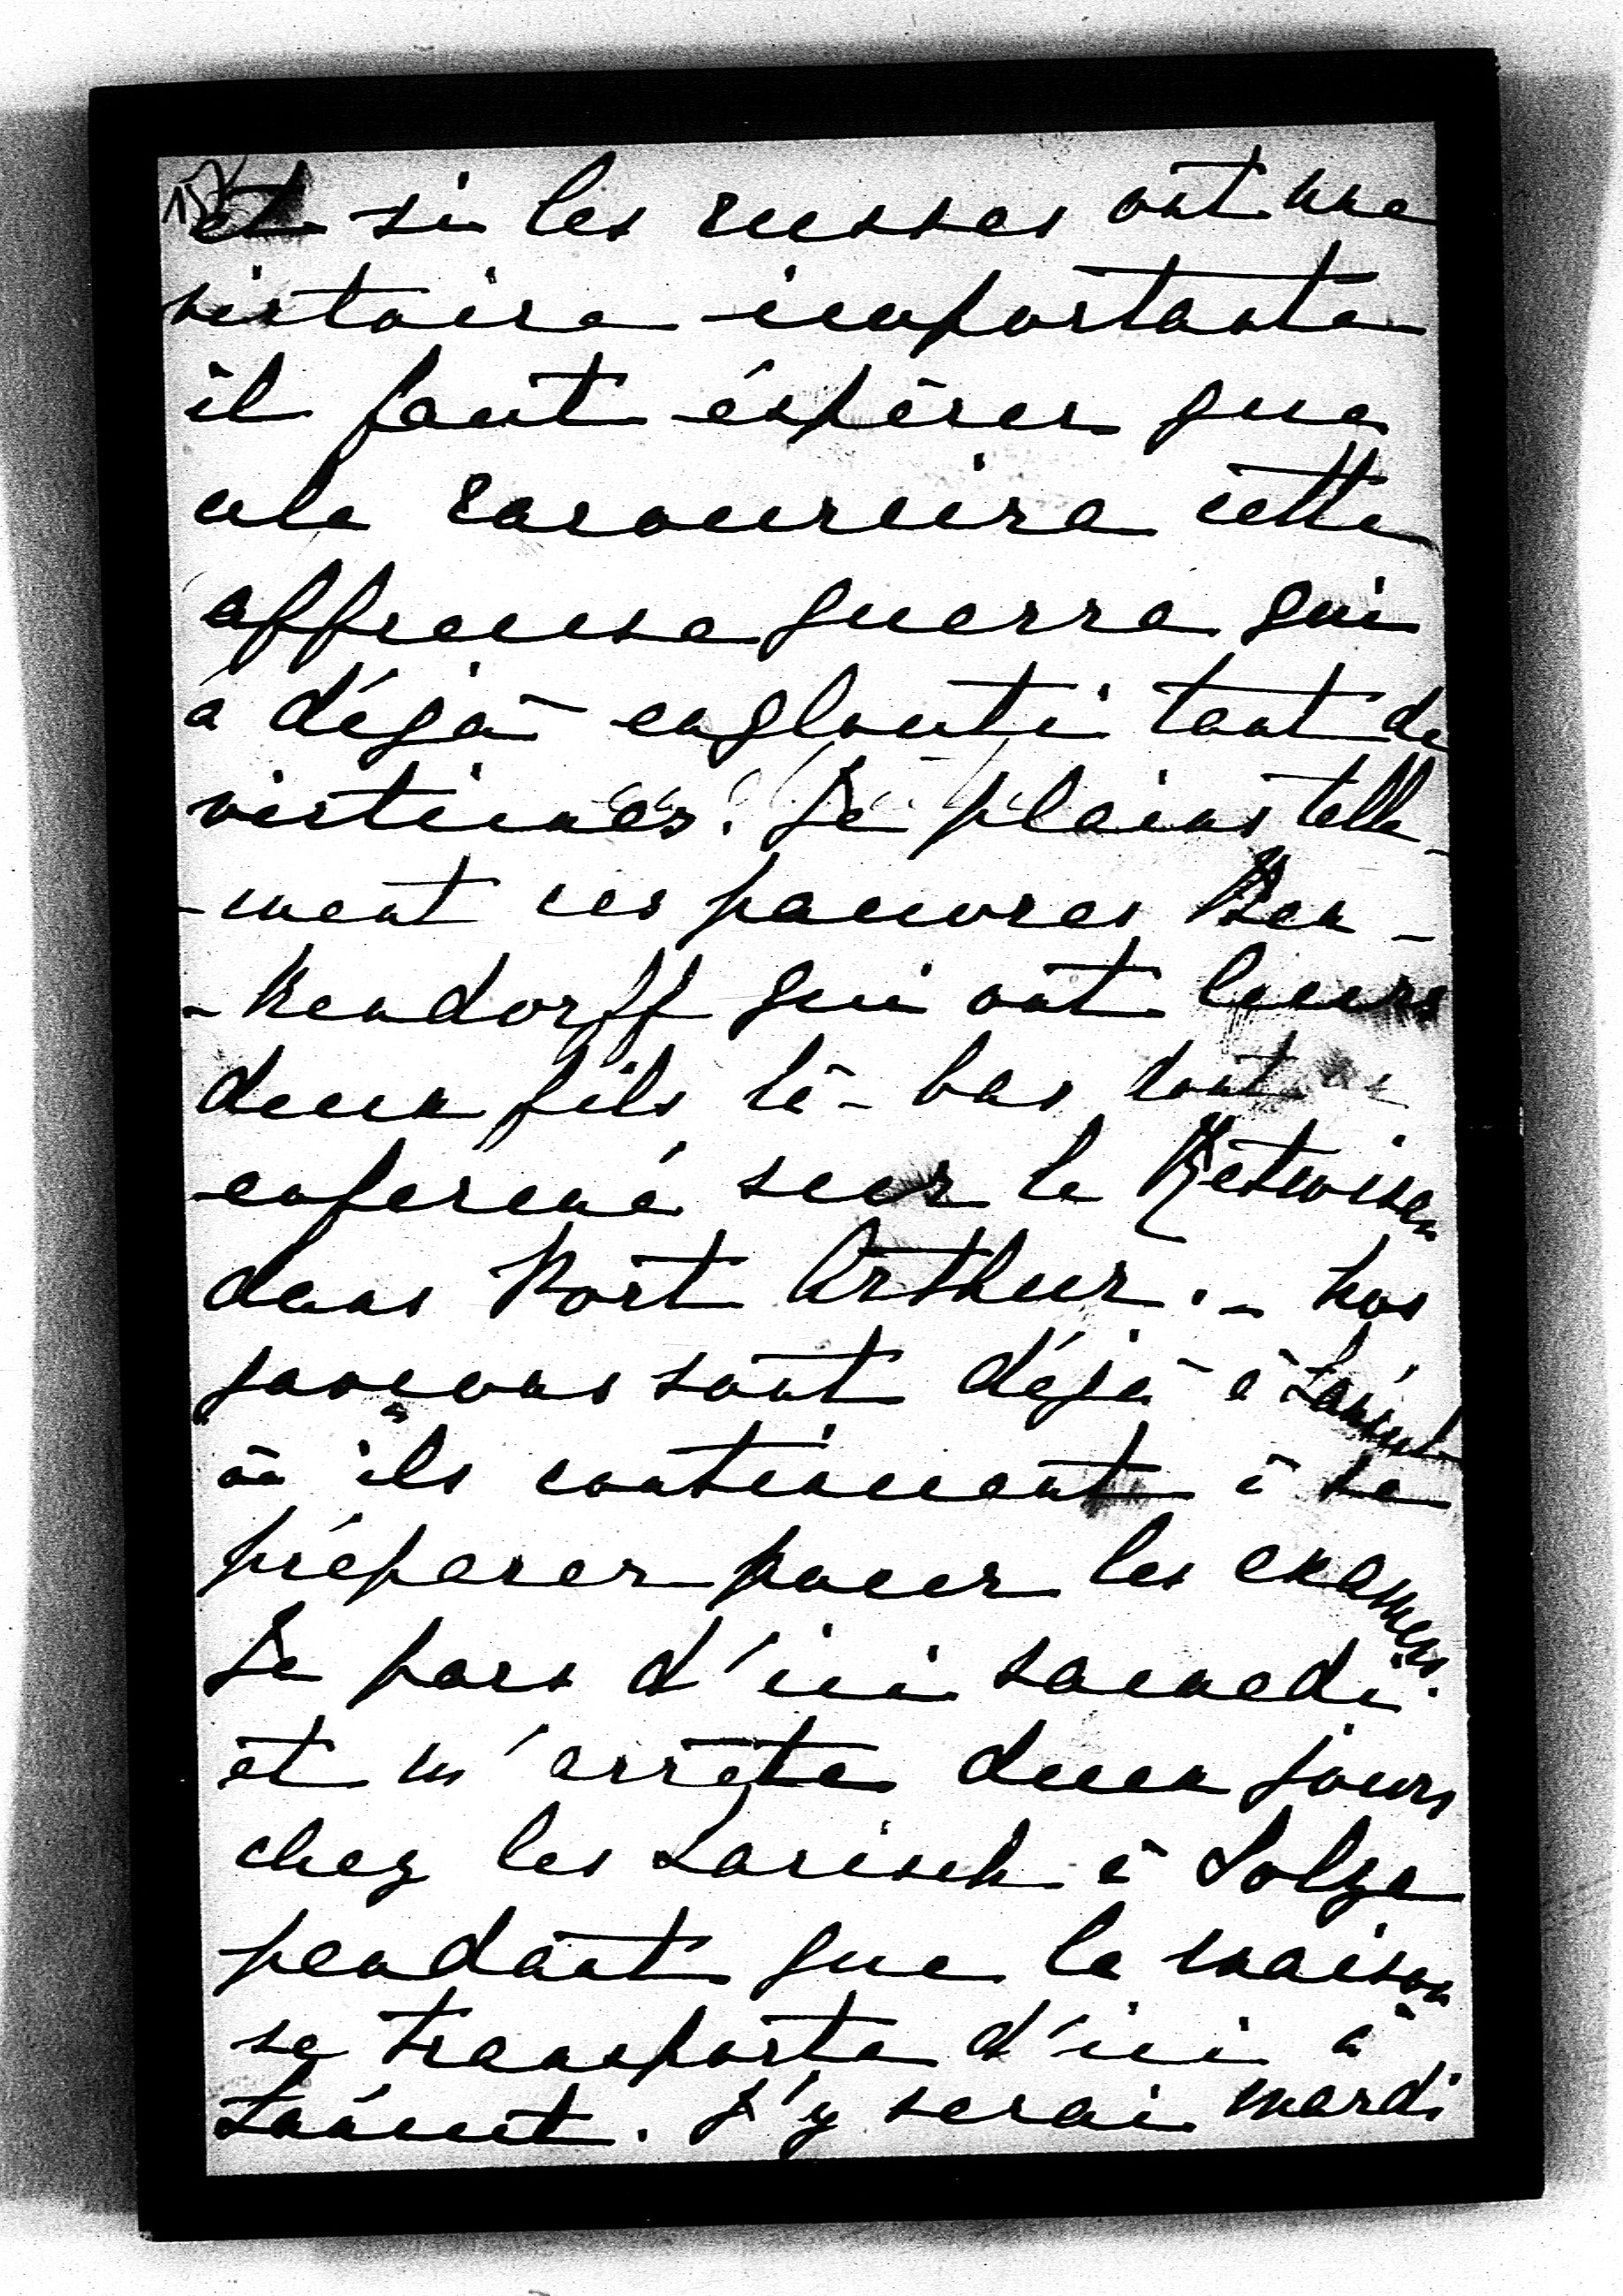 et si les russes ont une
victoire importante
il faut éspèrer que
cela racourcira cette
affreuse guerre qui
a déjà englouti tant de
victimes. Je plains telle-
-ment ces pauvres Ben-
-kendorff qui ont leurs
deux fils là-bas dont un
enfermé sur le Retwisan
dans Port Arthur. – Nos
garçons sont déjà à Láncut
où ils continuent à se
préparer pour les examens.
Je pars d'ici samedi
et m'arrête deux jours
chez les Larisch à Solza
pendant que la maison
se transporte d'ici à
Láncut. J'y serai mardi